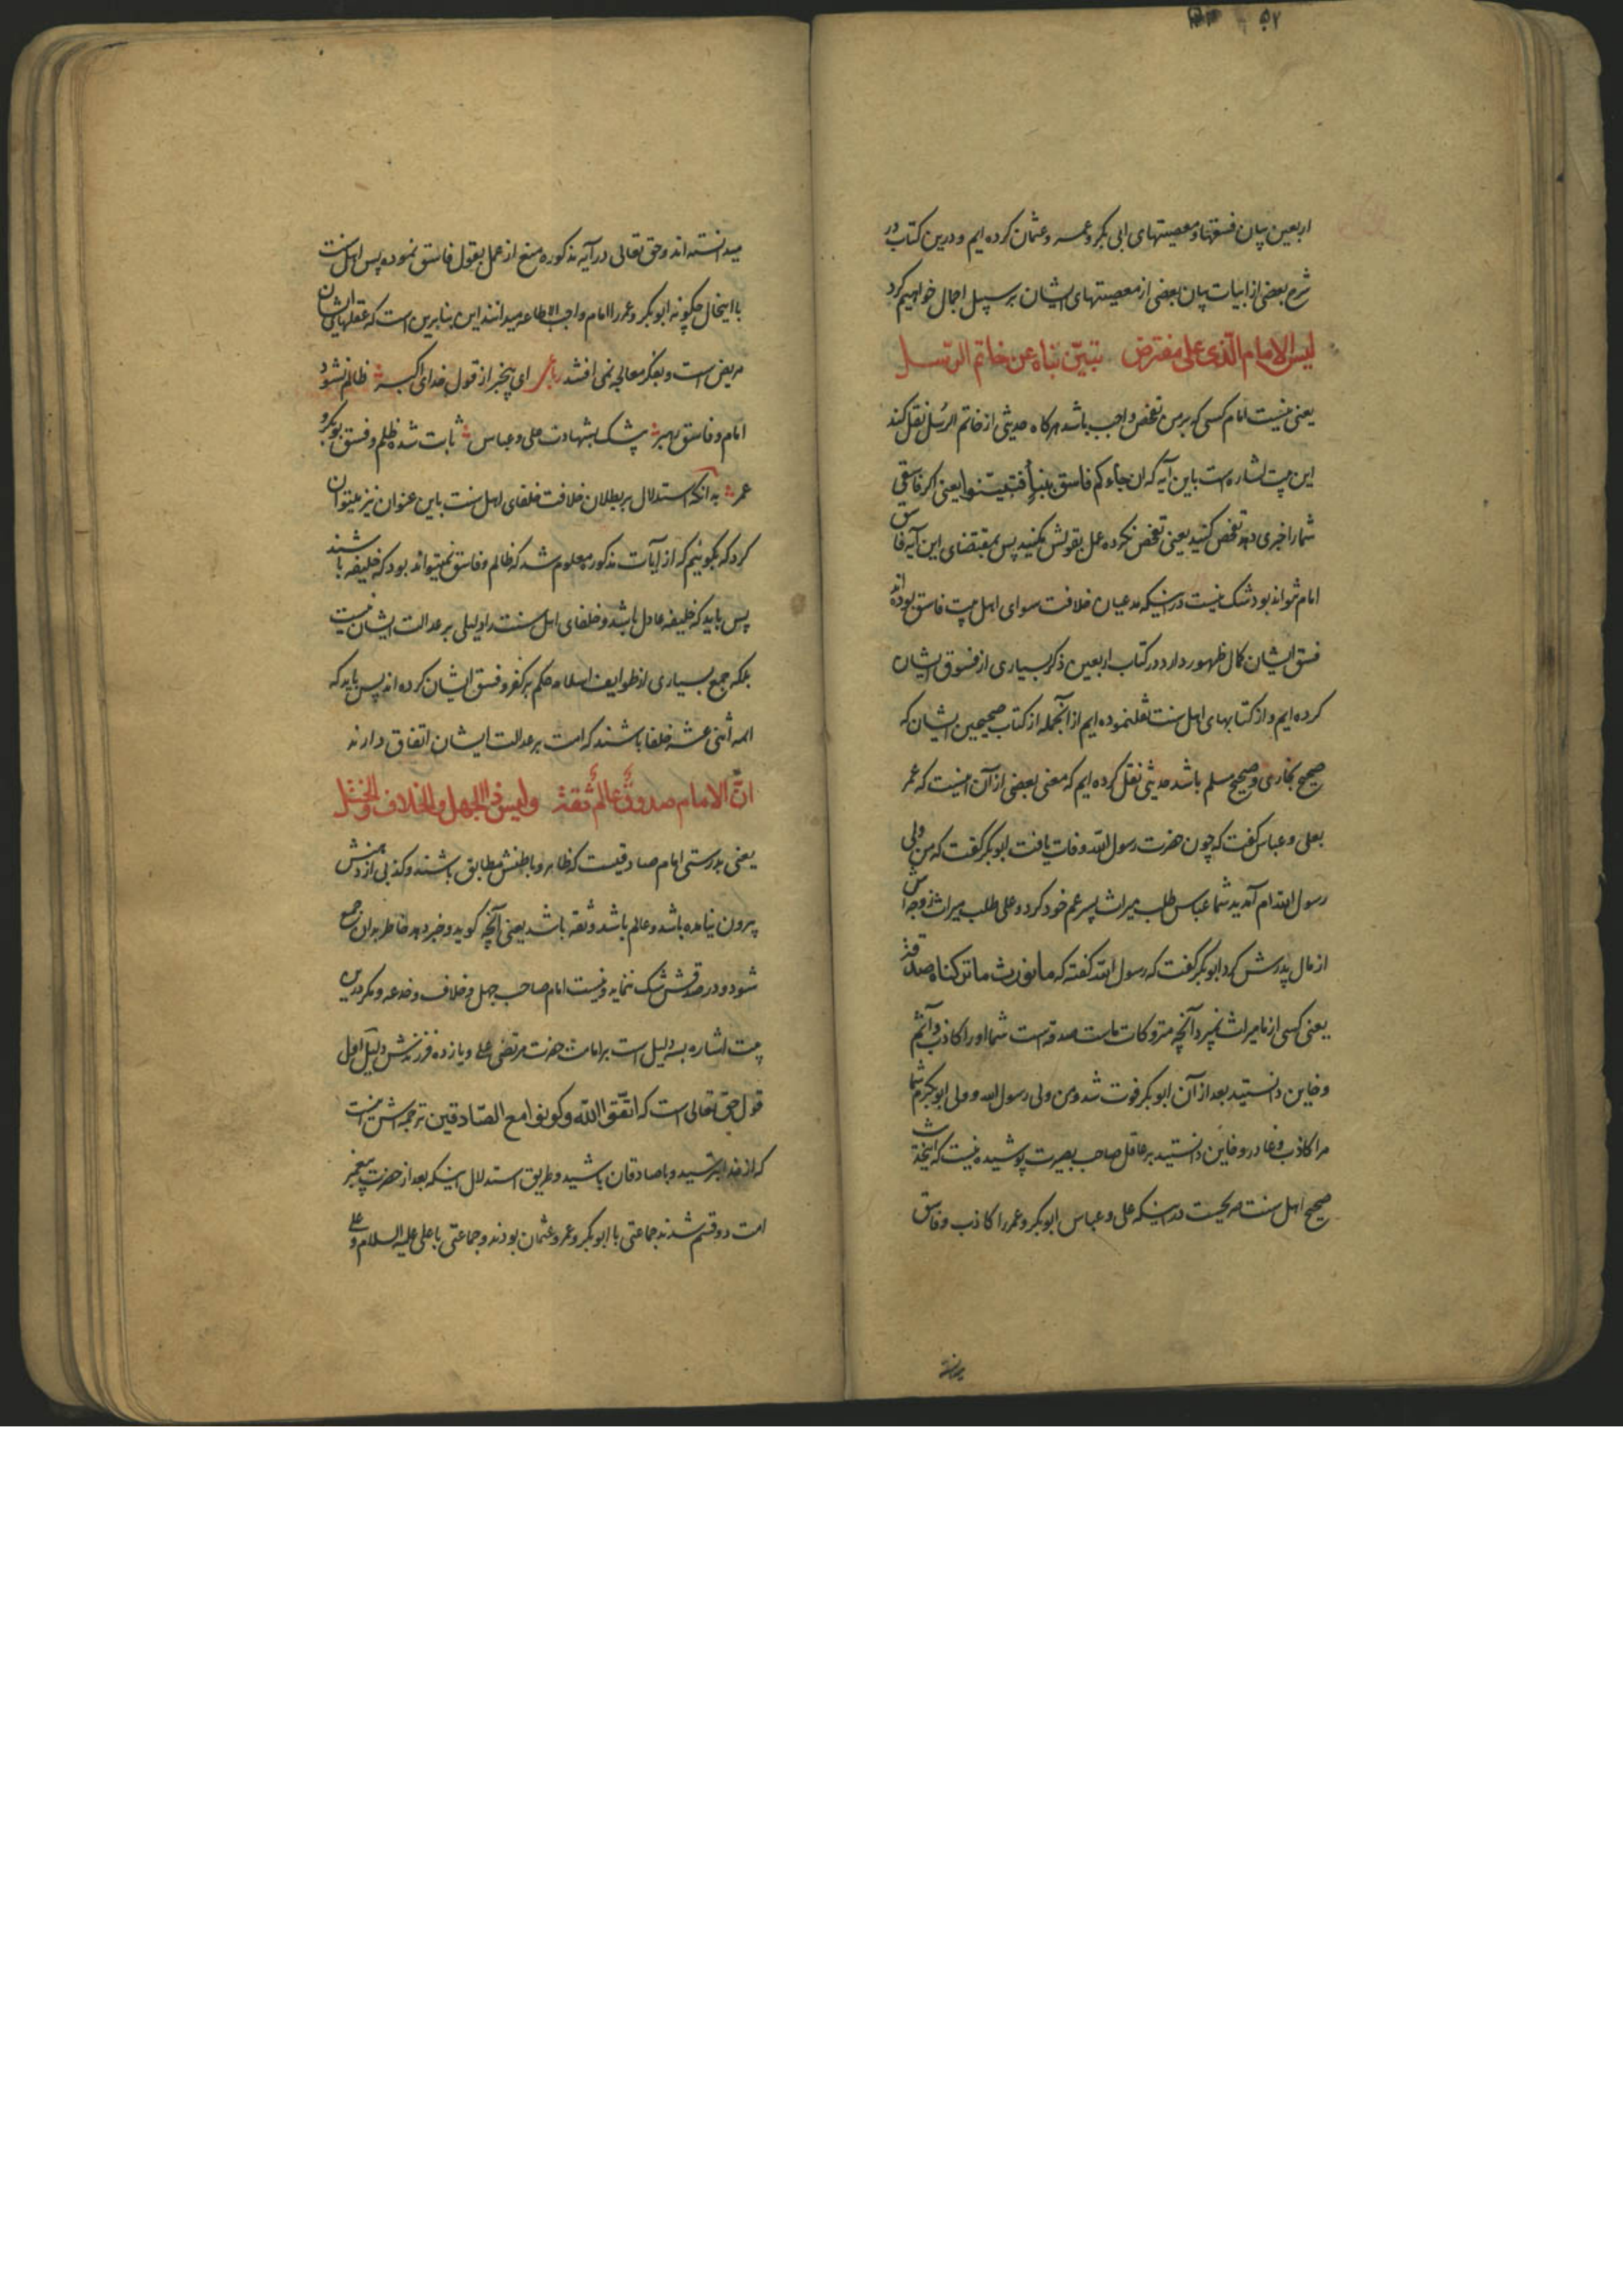 ۵۲
اربعین بیان فسقها و معصیتهای ابی بکر و عمر و عثمان کرده ایم و درین کتاب در
شرح بعضی از ابیات بیان بعضی از معصیتهای ایشان بر سبیل اجمال خواهیم کرد
لیس الامام الذی علی مفترض تبیّن نباه عن خاتم الرسل
یعنی نیست امام کسی که بر من تفحص واجب باشد هرکاه حدیثی از خاتم الرسل نقل کند
این بیت اشاره است باین آیه که ان جاءکم فاسق بنبأ فتبیّنوا یعنی اکر فاسقی
شما را خبری دهد تفحص کنید یعنی تفحص نکرده عمل بقولش مکنید پس بمقتضای این آیه فاسق
امام نتواند بود شک نیست در اینکه مدعیان خلافت سوای اهل بیت فاسق بوده اند
فسق ایشان کمال ظهور دارد در کتاب اربعین ذکر بسیاری از فسوق ایشان
کرده ایم و از کتابهای اهل سنت نقلنموده ایم از آنجمله از کتاب صحیحین ایشان که
صحیح بخاری و صحیح مسلم باشد حدیثی نقل کرده ایم که معنی بعضی از آن اینست که عمر
بعلی و عباس کفت که چون حضرت رسول الله وفات یافت ابو بکر کفت که من ولی
رسول الله ام آمدید شما عباس طلب میراث پسر عم خود کرد و علی طلب میراث زوجه اش
از مال پدرش کرد ابو بکر کفت که رسول الله کفته که ما نورث ما ترکناه صدقة
یعنی کسی از ما میراث نمیبرد آنچه متروکات ماست صدقه است شما او را کاذب و آثم
و خاین دانستید بعد از آن ابو بکر فوت شد و من ولی رسول الله و ولی ابو بکرم شما
مرا کاذب و غادر و خاین دانستید بر عاقل صاحب بصیرت پوشیده نیست که اینحدیث
صحیح اهل سنت صریحست در اینکه علی و عباس ابو بکر و عمر را کاذب و فاسق
میدانسته
میدانسته اند و حق تعالی در آیه مذکوره منع از عمل بقول فاسق نموده پس اهل سنت
با اینحال چکونه ابو بکر و عمر را امام واجب الاطاعه میدانند این بنابرین است که عقلهای ایشان
مریض است و بفکر معالجه نمی افتند رباعی ای بیخبر از قول خدای اکبر ظالم نشود
امام و فاسق رهبر بیشک بشهادت علی و عباس ثابت شده ظلم و فسق بوبکر و
عمر بدانکه استدلال بر بطلان خلافت خلفای اهل سنت باین عنوان نیز میتوان
کرد که بکوئیم که از آیات مذکوره معلوم شد که ظالم و فاسق نمیتواند بود که خلیفه باشند
پس باید که خلیفه عادل باشد و خلفای اهل سنت را دلیلی بر عدالت ایشان نیست
بلکه جمع بسیاری از طوایف اسلام حکم بر کفر و فسق ایشان کرده اند پس باید که
ائمه اثنی عشر خلفا باشند که امت بر عدالت ایشان اتفاق دارند
انّ الامام صدوقٌ عالمٌ ثقة ولیس ذی الجهل والخلاف والختل
یعنی بدرستی امام صادقیست که ظاهر و باطنش مطابق باشند و کذبی از دهنش
بیرون نیامده باشد و عالم باشد و ثقه باشد یعنی آنچه کوید و خبر دهد خاطر بدان جمع
شود و در صدقش شک ننماید و نیست امام صاحب جهل و خلاف و خدعه و مکر درین
بیت اشاره بسه دلیل است بر امامت حضرت مرتضی علی و یازده فرزندش دلیل اول
قول حق تعالی است که اتّقوا الله وکونوا مع الصادقین ترجمه اش اینست
که از خدا بترسید و با صادقان باشید و طریق استدلال اینکه بعد از حضرت پیغمبر
امت دو قسم شدند جماعتی با ابو بکر و عمر و عثمان بودند و جماعتی با علی علیه السلام و